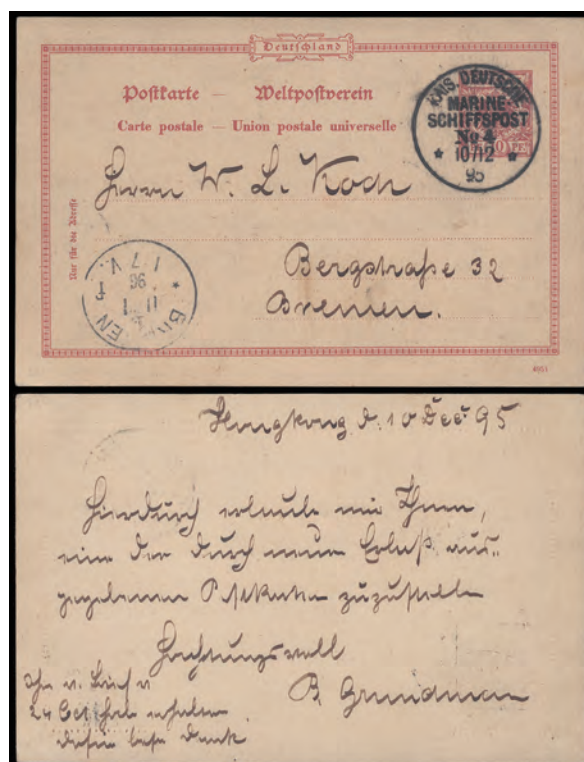 Deutschland
Postkarte — Weltpostverein
Carte postale — Union postale universelle
KAIS. DEUTSCHE
MARINE-
SCHIFFSPOST
No 4
* 10/12 *
95
Herrn W. L. Koch
Nur für die Adresse
Bergstraße 32
Bremen.
BREMEN
11 1
96
1 7 V.
Hongkong d. 10 Dec. 95
Hierdurch erlaube mir Ihnen,
eine der durch neuen Erlaß aus-
gegebenen Postkarten zuzustellen
Hochtungsvoll
24 Oct erhalten
dafür besten Dank
Grundmann